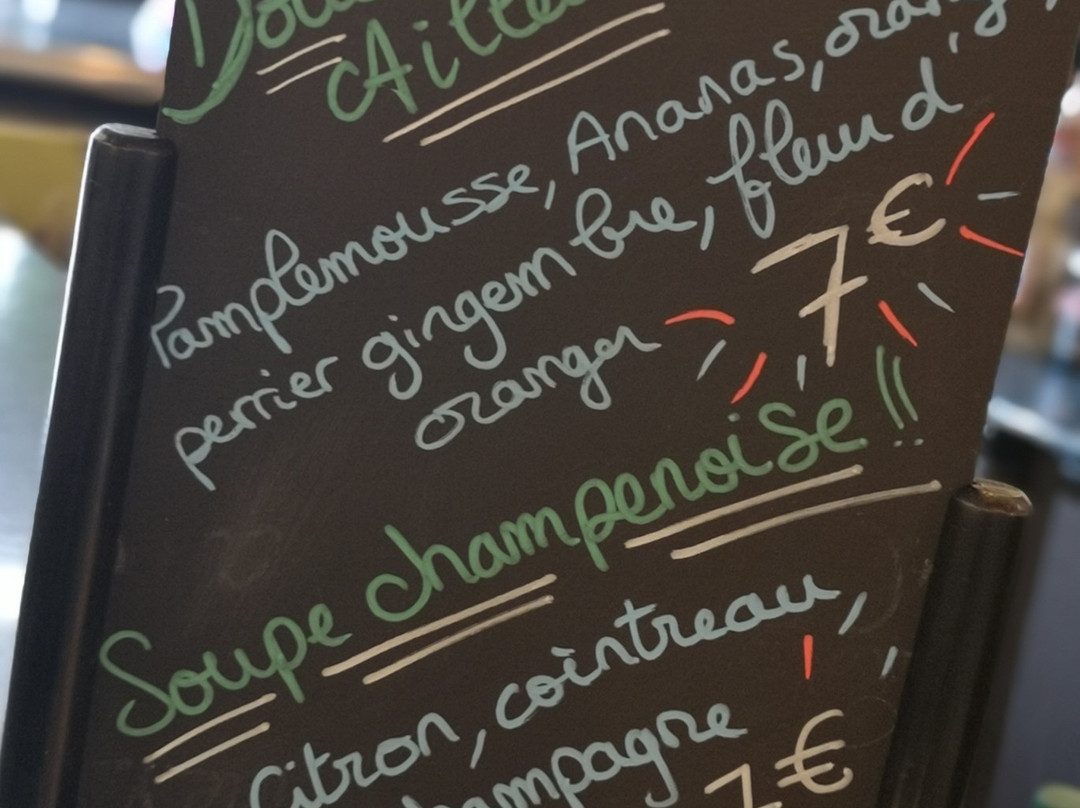 Ailleu
Pamplemousse, Ananas, orang
perrier gingembre, fleur d'
oranger 7€
Soupe champenoise !!
Citron, cointreau,
hampagne 7€